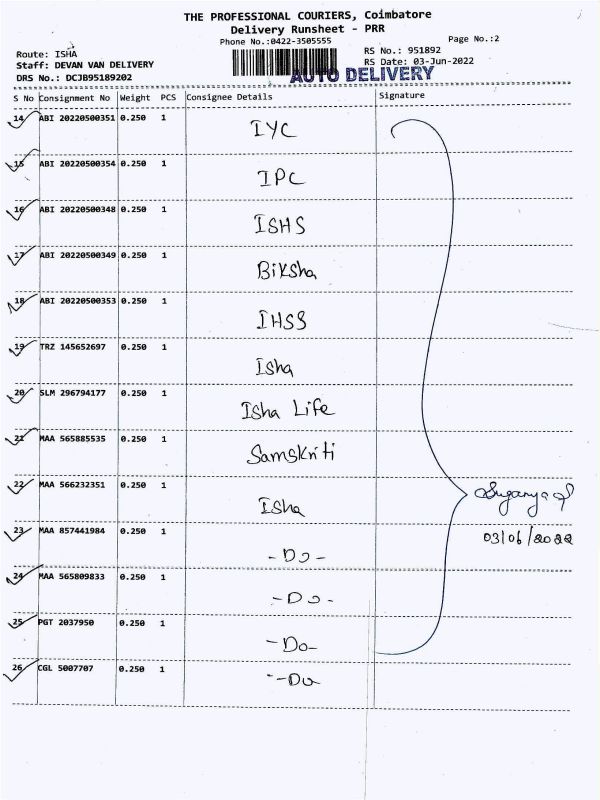 THE PROFESSIONAL COURIERS, Coimbatore
Delivery Runsheet - PRR
Phone No.:0422-3505555
Page No.:2
Route: ISHA
RS No.: 951892
Staff: DEVAN VAN DELIVERY
RS Date: 03-Jun-2022
DRS No.: DCJB95189202
AUTO DELIVERY
S No Consignment No Weight PCS Consignee Details Signature
14 ABI 20220500351 0.250 1 IYC
15 ABI 20220500354 0.250 1 IPC
16 ABI 20220500348 0.250 1 ISHS
17 ABI 20220500349 0.250 1 Biksha
18 ABI 20220500353 0.250 1 IHSS
19 TRZ 145652697 0.250 1 Isha
20 SLM 296794177 0.250 1 Isha Life
21 MAA 565885535 0.250 1 Samskriti
22 MAA 566232351 0.250 1 Isha
Suganya
03/06/2022
23 MAA 857441984 0.250 1 -Do-
24 MAA 565809833 0.250 1 -Do-
25 PGT 2037950 0.250 1 -Do-
26 CGL 5007707 0.250 1 -Do